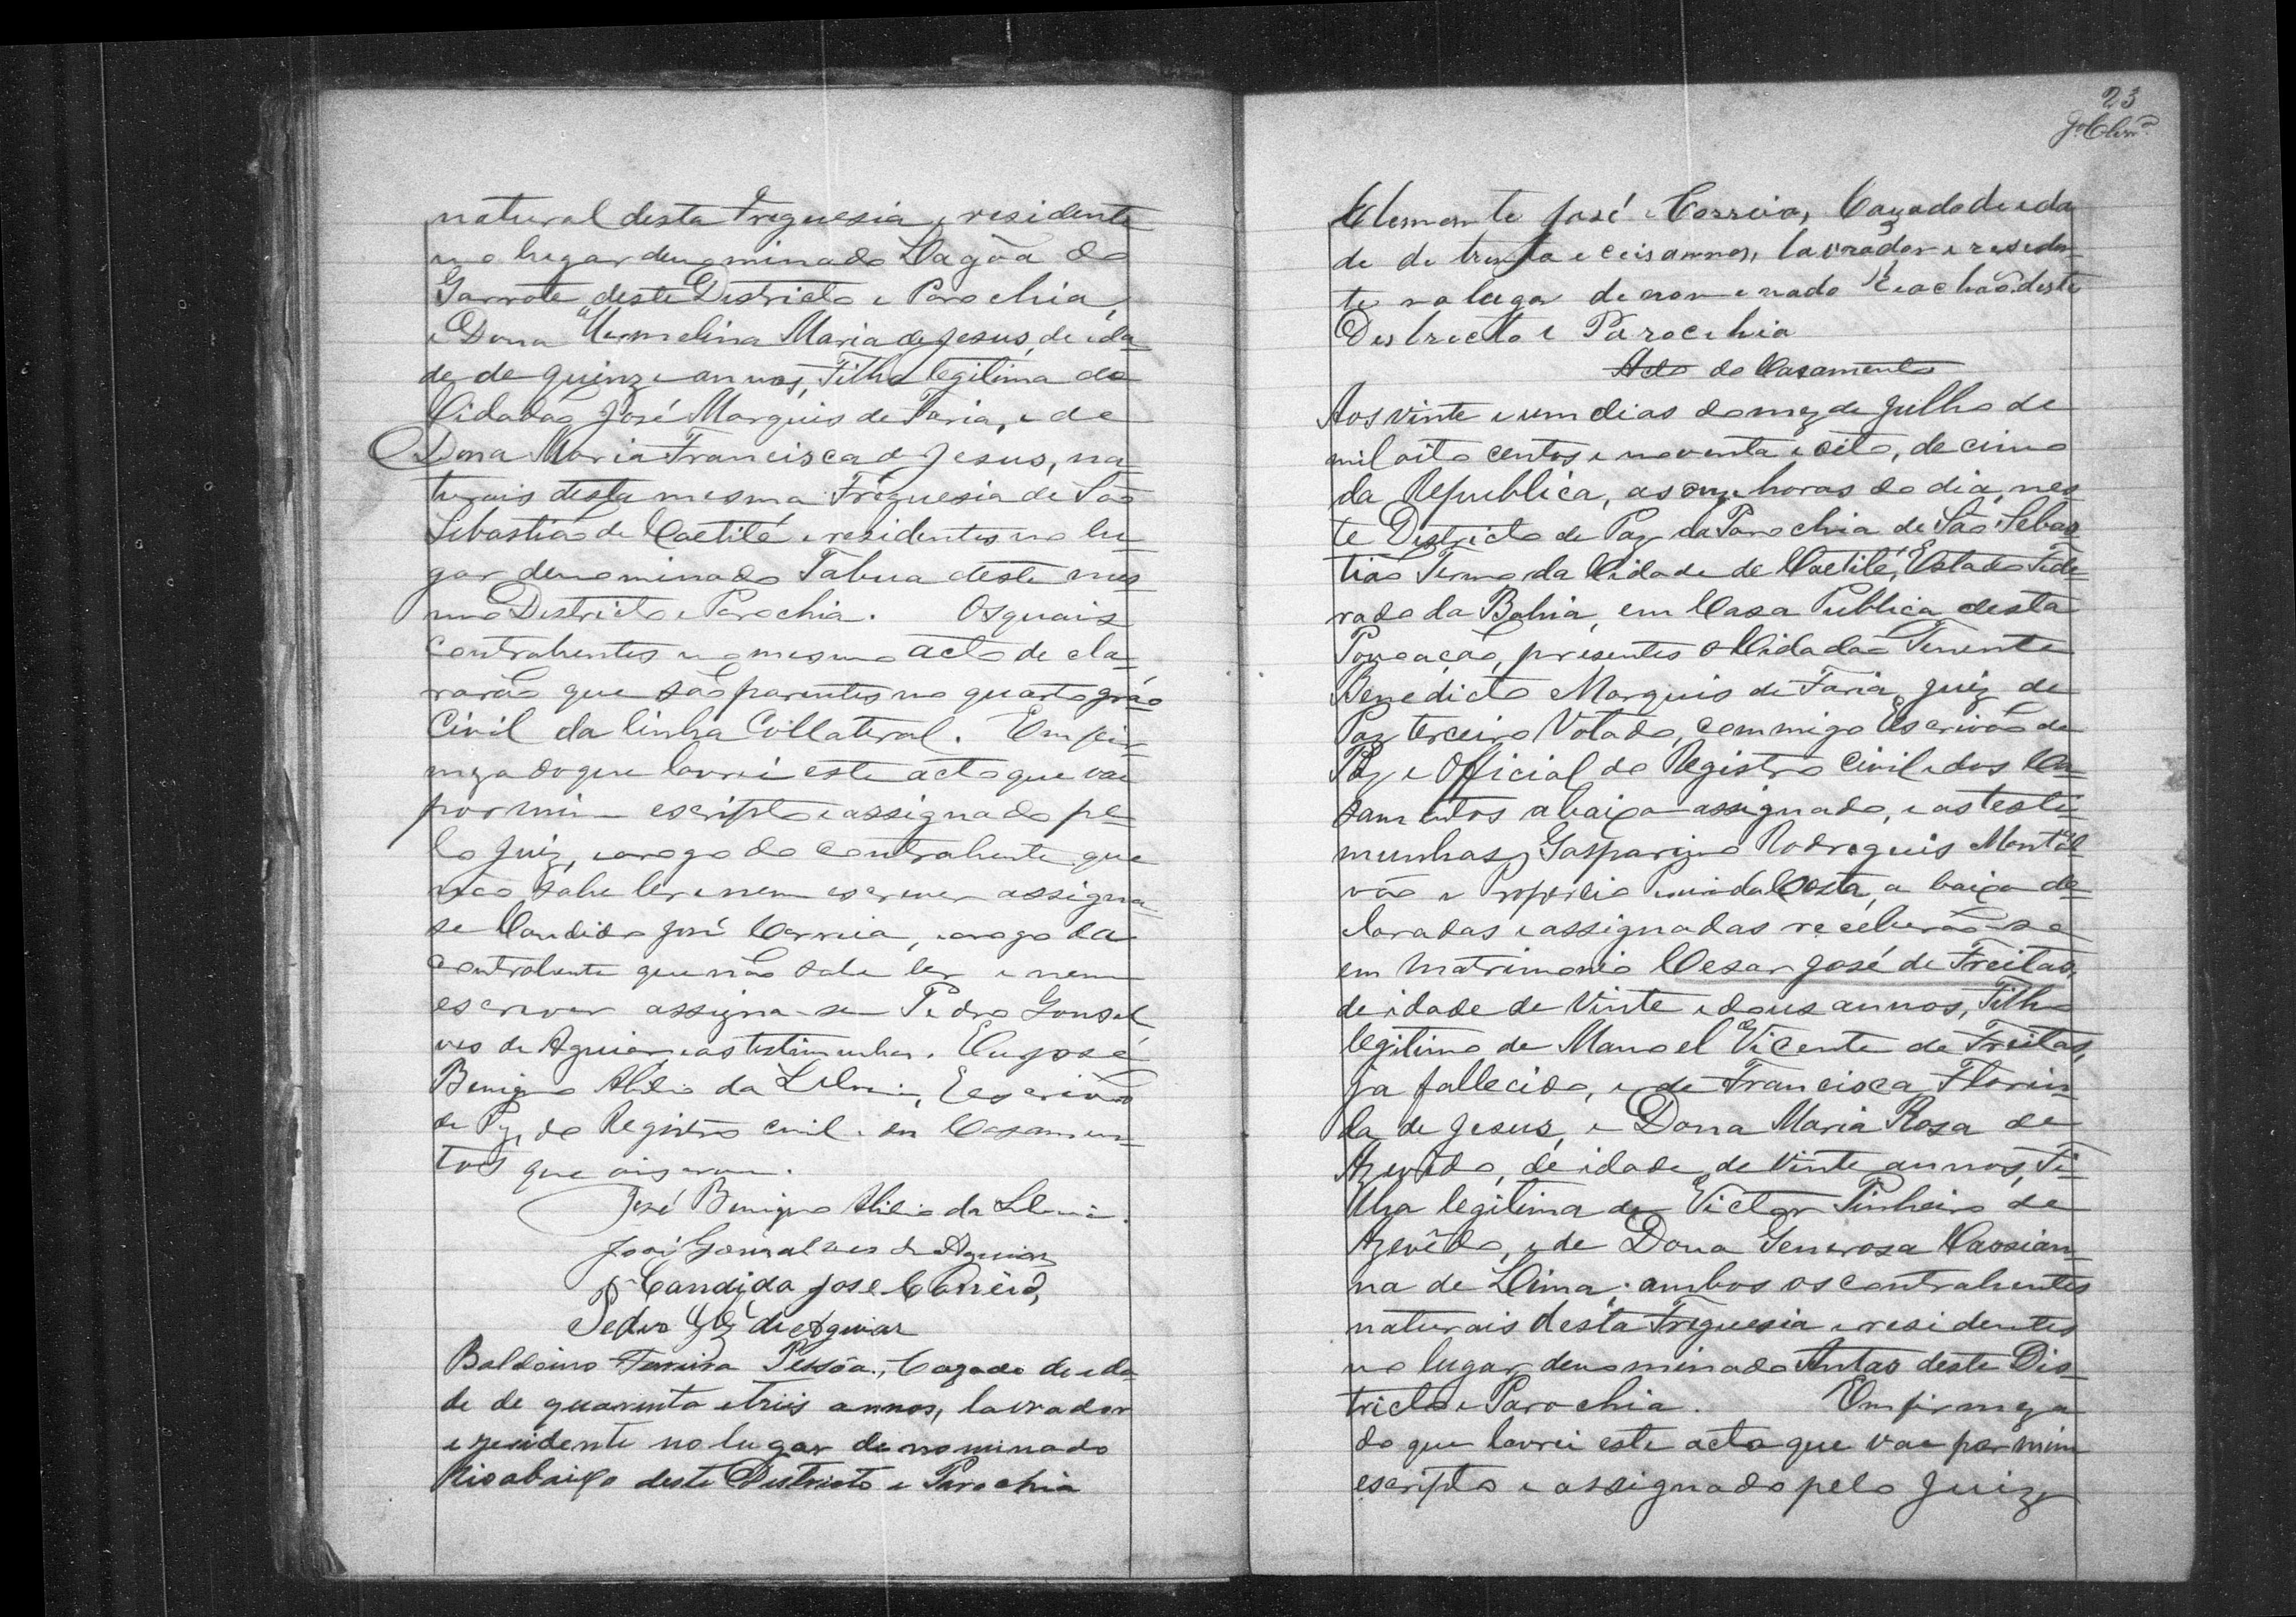 natural desta Freguesia, e residente
no lugar denominado Lagôa do
Garrote deste Districto e Parochia,
e Dona Hermelina Maria de Jesus, de ida-
de de quinze annos, Filha legitima do
Cidadão José Marques de Faria, e de
Dona Maria Francisca de Jesus, na-
turais desta mesma Freguesia de São
Sebastião de Caetité e residentes no lu-
gar denominado Tabua deste mes-
mo Districto e Parochia. Os quais
contrahentes no mesmo acto decla-
rarão que são parentes no quarto gráo
Civil da linha Collateral. Em fir-
meza do que lavrei este acto que vai
por mim escripto e assignado pe-
lo Juiz, e arogo do contrahente que
não sabe ler e nem escrever assigna-
se Candido José Correia, e arogo da
contrahente que não sabe ler e nem
escrever assigna-se Pedro Gonsal-
ves de Aguiar, e as testimunhas. Eu José
Benigno Abilio da Silva, Escrivão
de Paz, do Registro civil e dos Casamen-
tos que
José Benigno Abilio da Silva.
José Gonsalves de Aguiar
Candido José Correia,
Pedro Glz de Aguiar
Baldoino Ferreira Pessôa, Cazado de ida-
de de quarenta e treis annos, lavrador
e rezidente no lugar denominado
Rioabaixo deste Districto e Parochia
23
Clemente José Correia, Cazado de ida
de de trenta e ceis annos, lavrador e residen-
te no lugar denomenado Reachão deste
Destrecto e Parocchia
Acto do Casamento
Aos vinte e um dias do mez de Julho de
mil oito centos e noventa e oito, decimo
da Republica, as onze horas do dia, nes-
te Districto de Paz da Parochia de São Sebas-
tião Termo da Cidade de Caetité, Estado Fede-
rado da Bahia, em Casa Publica desta
Povoação, presentes o Cidadão Tenente
Benedicto Marques de Faria, Juiz de
Paz terceiro Votado, commigo Escrivão de
Paz e Official do Registro Civil e dos Ca-
samentos abaixo assignado, e as teste-
munhas, Gasparino Rodrigues Montal-
vão e da Costa, a baixo de-
claradas e assignadas receberão-se
em matrimonio Cesar José de Freitas,
de idade de Vinte e dous annos, Filho
legitimo de Manoel Vicente de Freitas,
ja fallecido, e de Francisca Florin-
da de Jesus, e Dona Maria Rosa de
Azevêdo, de idade de vinte annos, Fi-
lha legitima de Victor Pinheiro de
Azevêdo, e de Dona Generosa Cassian-
na de Lima; ambos os contrahentes
naturais desta Freguesia e residentes
no lugar denominado Antas deste Dis-
tricto e Parochia. Em firmeza
do que lavrei este acto que vae por mim
escripto e assignado pelo Juiz